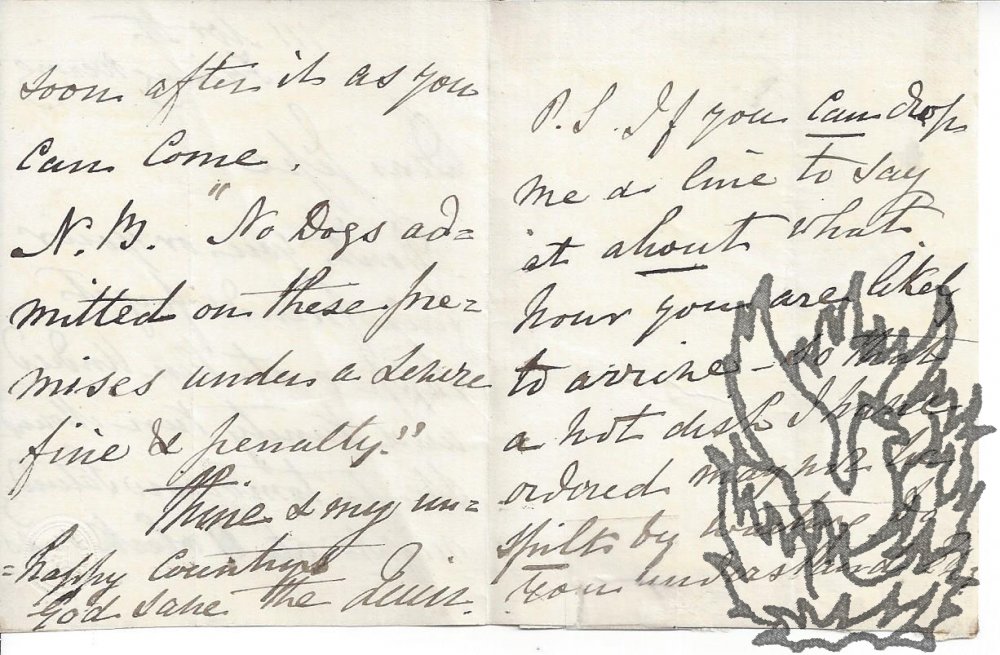 soon after it as you
can come.
N.B. "No Dogs ad=
mitted on these pre=
mises under a severe
fine & penalty."
Thine & my un=
=happy Countrys
God save the
P.S. If you can drop
me a line to say
at about what
hour you are likely
to arrive – so that
a hot dish I have
ordered may not be
spilt by waiting. Do
you understand